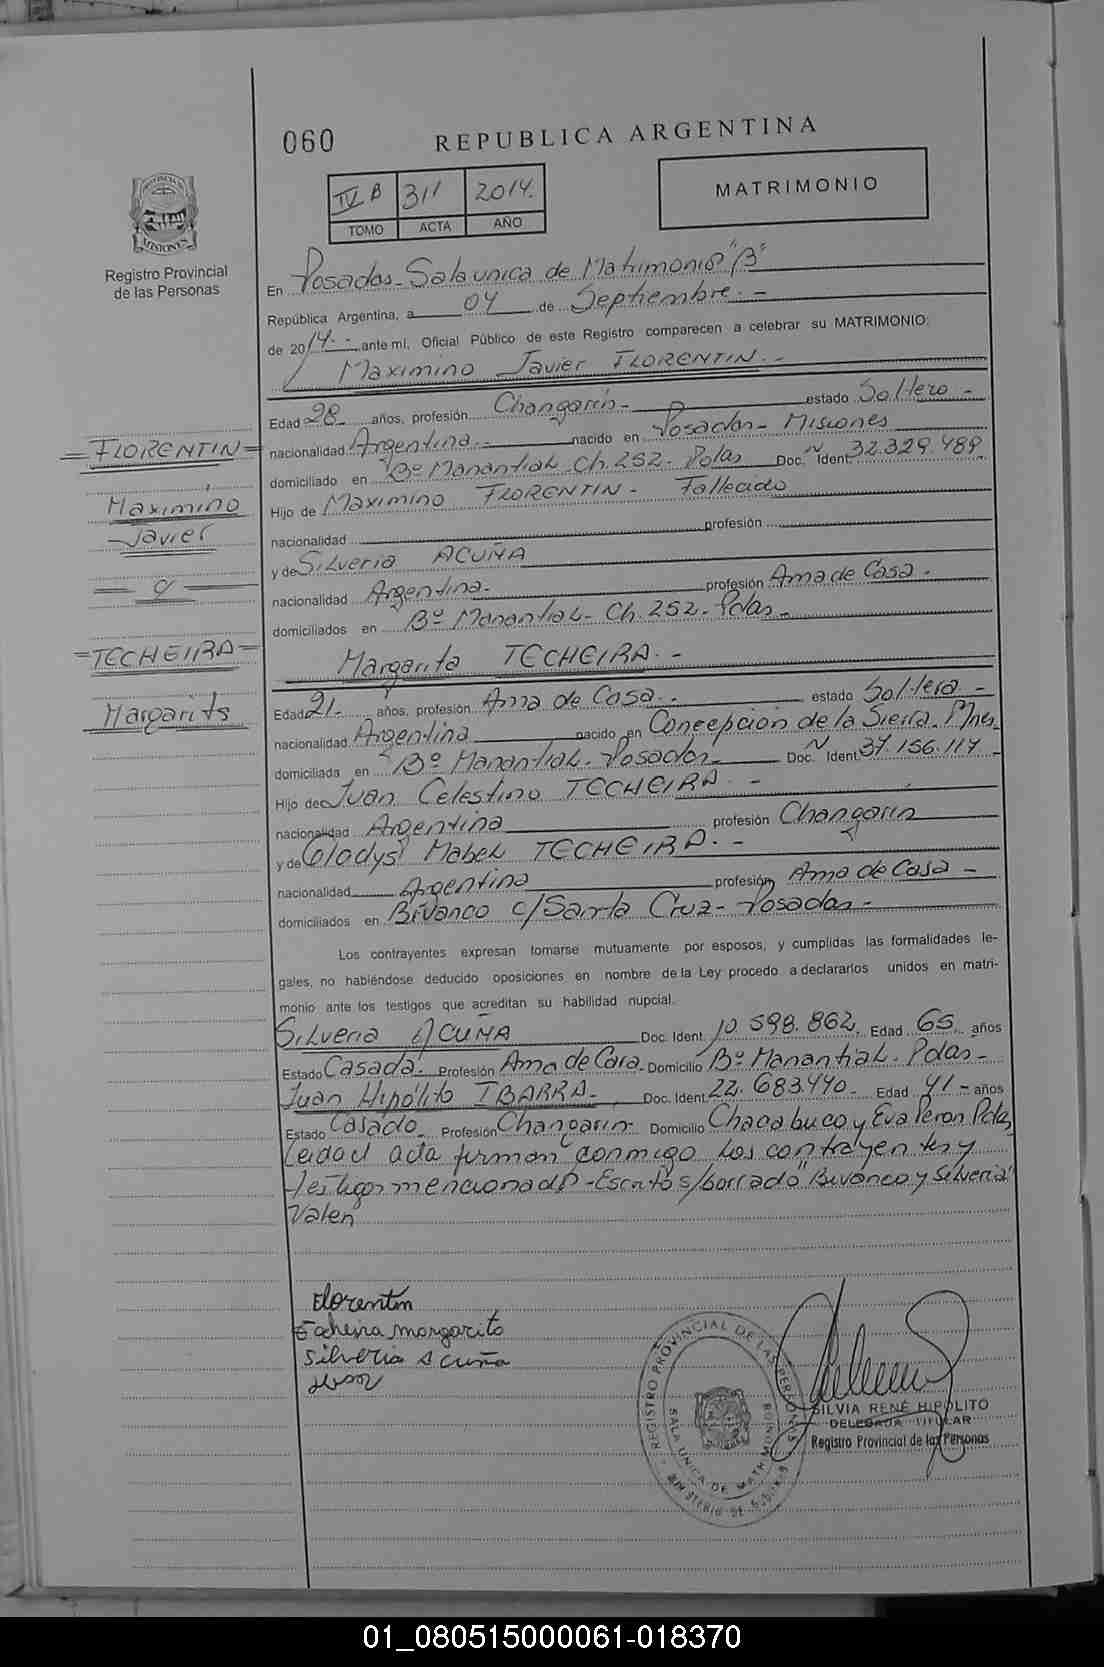 060 REPUBLICA ARGENTINA
IV B 311 2014.
TOMO ACTA AÑO
MATRIMONIO
PROVINCIA DE
MISIONES
Registro Provincial
de las Personas
En Posadas - Sala unica de Matrimonio "B"
República Argentina, a 04 de Septiembre. -
de 2014 - ante mí, Oficial Público de este Registro comparecen a celebrar su MATRIMONIO:
Maximino Javier FLORENTIN. -
Edad 28 años, profesión Changarín - estado Soltero -
nacionalidad Argentina. - nacido en Posadas - Misiones
domiciliado en Bº Manantial Ch. 252 - Pdas Doc. N Ident. 32.329.489
Hijo de Maximino FLORENTIN - Fallecido
nacionalidad profesión
y de Silveria ACUÑA
nacionalidad Argentina. profesión Ama de Casa. -
domiciliados en Bº Manantial - Ch. 252 - Pdas -
= FLORENTIN =
Maximino
Javier
= c/ =
= TECHEIRA =
Margarita
Margarita TECHEIRA. -
Edad 21 - años, profesión Ama de Casa. - estado Soltera -
nacionalidad Argentina nacido en Concepción de la Sierra. Mnes
domiciliada en Bº Manantial - Posadas - Doc. N Ident. 37.156.117 -
Hijo de Juan Celestino TECHEIRA. -
nacionalidad Argentina profesión Changarín
y de Gladys Mabel TECHEIRA. -
nacionalidad Argentina profesión Ama de Casa -
domiciliados en Bivanco c/ Santa Cruz - Posadas -
Los contrayentes expresan tomarse mutuamente por esposos, y cumplidas las formalidades le-
gales, no habiéndose deducido oposiciones en nombre de la Ley procedo a declararlos unidos en matri-
monio ante los testigos que acreditan su habilidad nupcial.
Silveria ACUÑA Doc. Ident. 10.598.862. Edad 65 años
Estado Casada. Profesión Ama de Casa. Domicilio Bº Manantial. Pdas -
Juan Hipólito IBARRA - Doc. Ident. 22.683.440 - Edad 41 - años
Estado Casado. Profesión Changarín Domicilio Chacabuco y Eva Peron Pdas
Leida el acta firman conmigo los contrayentes y
testigos mencionados - Escrito s/borrado "Bivanco y Silveria"
Valen
Florentin
Techeira margarita
Silveria Acuña
REGISTRO PROVINCIAL DE LAS PERSONAS
SALA UNICA DE MATRIMONIOS
SILVIA RENÉ HIPOLITO
DELEGADA TITULAR
Registro Provincial de las Personas
01_080515000061-018370